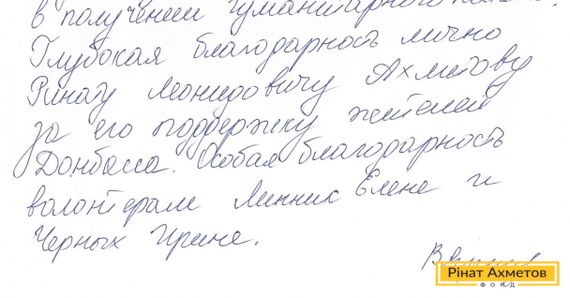 в получении гуманитарного
Глубокая благодарность лично
Ринату Леонидовичу Ахметову
за его поддержку жителей
Донбасса. Особая благодарность
волонтерам Линник Елене и
Черных Ирине.
Рінат Ахметов
ФОНД